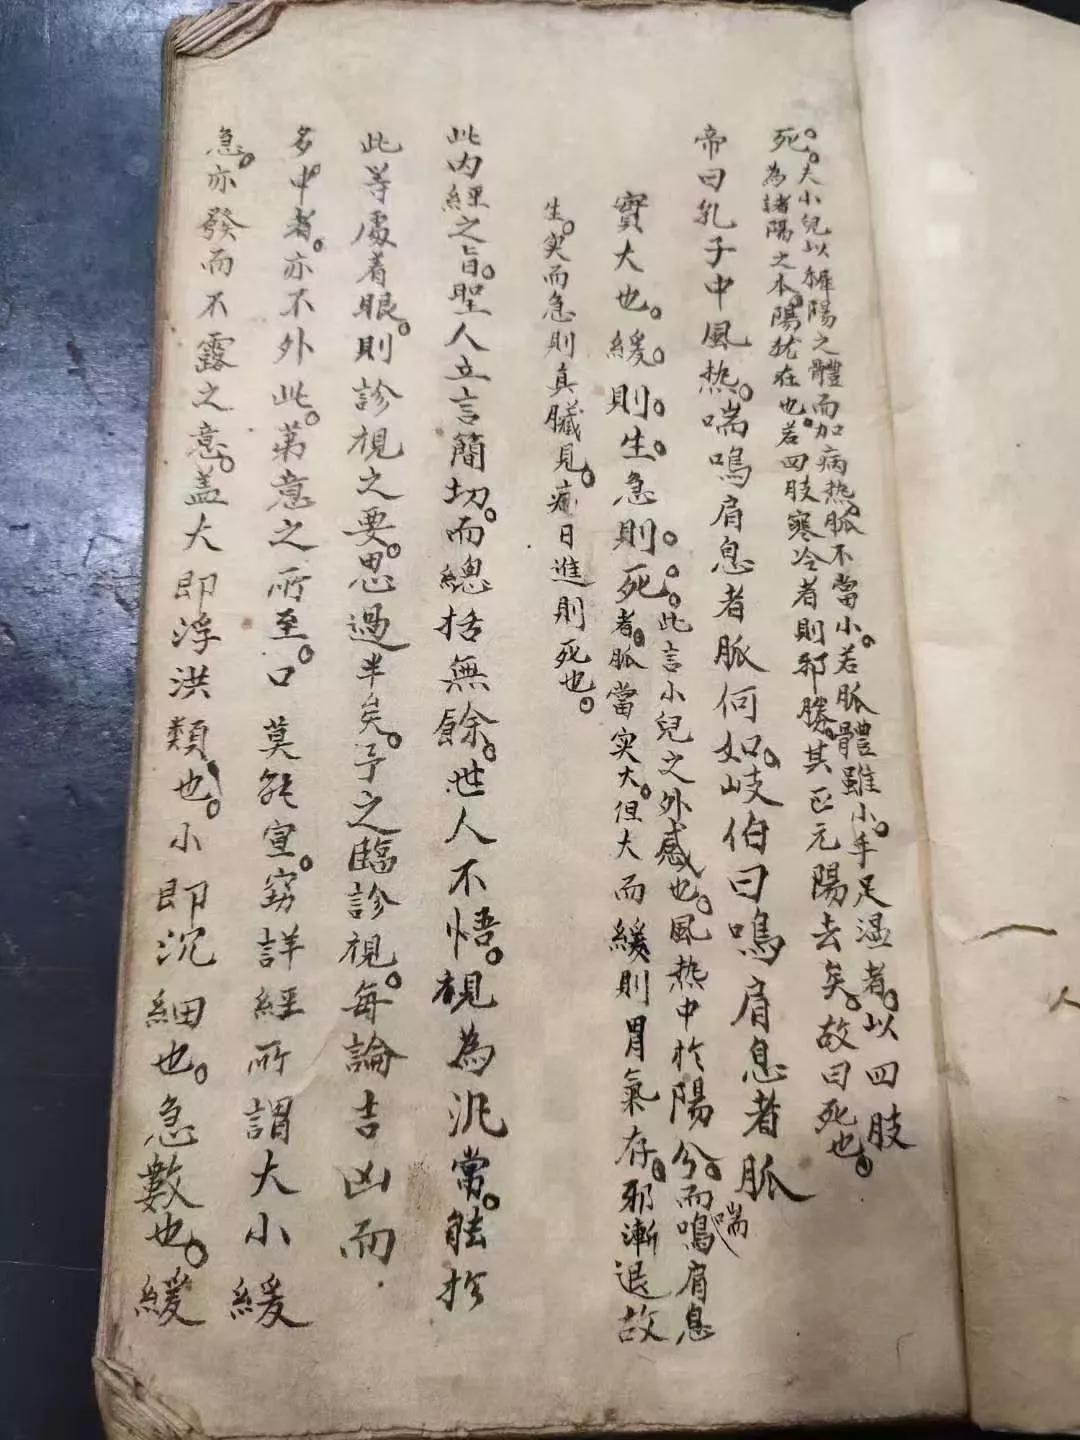 死。夫小兒以穉陽之體而加病热。脈不當小。若脈體雖小。手足溫者。以四肢
為諸陽之本。陽犹在也。若四肢寒冷者則邪勝。其正元陽去矣。故曰死也。
帝曰乳子中風热。喘鳴肩息者脈何如。岐伯曰鳴肩息者脈
實大也。緩。則。生。急則死。。此言小兒之外感也。風热中於陽分。而喘鳴肩息
者。脈當実大。但大而緩則胃氣存。邪漸退故
生。実而急則真臟見。病日進則死也。
此内經之旨。聖人立言簡切。而總括無餘。世人不悟。視為汎常。能於
此等處着眼。則診視之要。思過半矣。予之臨診視。每論吉凶而
多中者。亦不外此。第意之所至。口莫能宣。竊詳經所謂大小緩
急。亦發而不露之意。盖大即浮洪類也。小即沉細也。急數也。緩